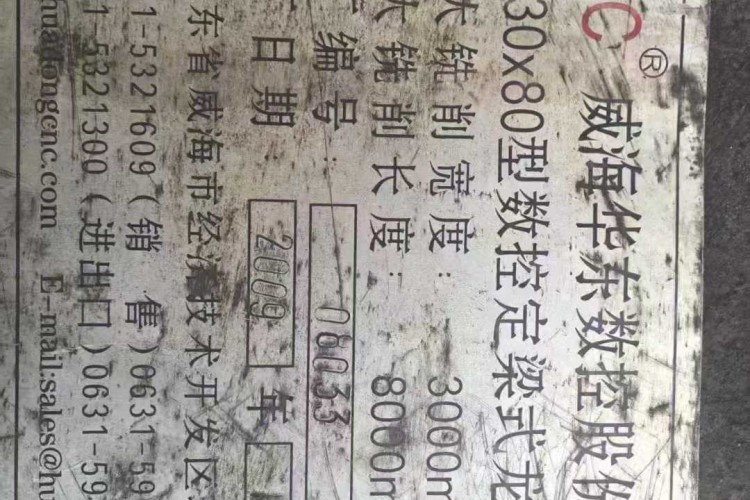 C®
威海华东数控股份
30x80型数控定梁式龙
大铣削宽度: 3000m
大铣削长度: 8000m
编号: 08033
日期 2009 年
东省威海市经济技术开发区
1-5321609(销 售)0631-59
1-5321300(进出口)0631-59
huadongcnc.com E-mail:sales@hu